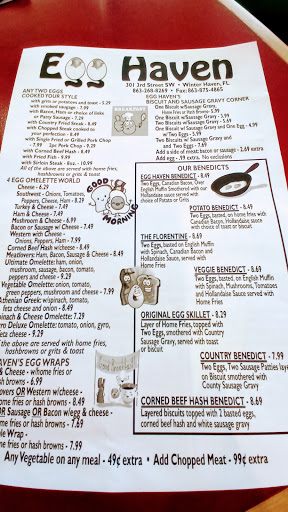 Egg Haven
301 3rd Street SW. • Winter Haven, FL
863-268-8269 • Fax: 863-875-4865
ANY TWO EGGS
COOKED YOUR STYLE
with grits or potatoes and toast - 5.29
with smoked sausage - 7.99
with Bacon, Ham or choice of links
or Patty Sausage - 7.29
with Country Fried Steak - 8.49
with Chopped Steak cooked
to your order - 8.49
with Single Fried or Grilled Pork Chop
- 7.99 2pc Pork Chop - 9.29
with Corned Beef Hash - 8.49
with Fried Fish - 9.99
with Sirloin Steak - 8oz. -
All the above are served with home fries,
hashbrowns or grits & toast
4 EGG OMELETTE WORLD
Cheese - 6.29
Southwest - Onions, Tomatoes,
Peppers, Cheese, Ham - 8.29
Turkey & Cheese - 7.49
Ham & Cheese - 7.49
Mushroom & Cheese - 6.99
Bacon or Sausage w/ Cheese - 7.49
Western with Cheese -
Onions, Peppers, Ham - 7.99
Corned Beef Hash w/cheese - 8.49
Meatlovers: Ham, Bacon, Sausage & Cheese - 8.49
Ultimate Omelette: ham, onion,
mushroom, sausage, bacon, tomato,
peppers and cheese - 9.29
Vegetable Omelette: onion, tomato,
green peppers, mushroom and cheese - 7.99
Athenian Greek: w/spinach, tomato,
feta cheese and onion - 8.49
Spinach & Cheese Omelette: 7.29
Gyro Deluxe Omelette: tomato, onion, gyro,
feta cheese - 9.29
of the above are served with home fries,
hashbrowns or grits & toast
HAVEN'S EGG WRAPS
& Cheese - w/home fries or
hash browns - 6.99
OR Western w/cheese
home fries or hash browns - 7.99
OR Sausage OR Bacon w/egg & cheese -
home fries or hash browns - 7.49
Wrap -
home fries or hash browns - 7.99
GOOD MORNING
EGG HAVEN'S
BISCUIT AND SAUSAGE GRAVY CORNER
One Biscuit w/Sausage Gravy,
Home Fries or Hash Browns - 5.99
One Biscuit w/Sausage Gravy - 3.99
Two Biscuits w/Sausage Gravy - 5.49
One Biscuit w/ Sausage Gravy and One Egg - 4.99
Two Biscuit w/ Sausage Gravy and
and Two Eggs - 7.69
Add a side of meat: bacon or sausage - 2.69 extra
Add egg - .99 extra. No exclusions
OUR BENEDICTS
EGG HAVEN BENEDICT - 8.49
Two Eggs, Canadian Bacon, Over
English Muffin Smothered with our
Hollandaise Sauce served with your
choice of Potato or Grits
POTATO BENEDICT - 8.49
Two Eggs, basted, on home fries with
Canadian Bacon, Hollandaise Sauce with
your choice of toast
THE FLORENTINE - 8.69
Two Eggs, basted on English Muffin
with Spinach, Canadian Bacon and
Hollandaise Sauce served with
Home Fries
VEGGIE BENEDICT - 8.69
Two Eggs, basted on English Muffin
with Spinach, Mushrooms, Tomatoes
and Hollandaise Sauce served with
Home Fries
ORIGINAL EGG SKILLET - 8.29
Layer of Home Fries, topped with
Two Eggs, smothered with Country
Sausage Gravy, served with toast
or biscuit
COUNTRY BENEDICT - 7.99
Two Eggs, Two Sausage Patties layered
on Biscuit smothered with
County Sausage Gravy
CORNED BEEF HASH BENEDICT - 8.69
Layered biscuits topped with 2 basted eggs,
corned beef hash and white sausage gravy
Any Vegetable on any meal - 49¢ extra • Add Chopped Meat - 99¢ extra